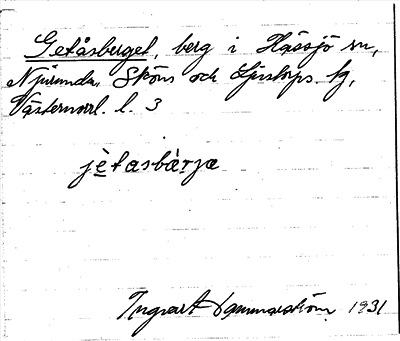 Getåsberget, berg i Hässjö sn,
Njurunda, Sköns och Ljustorps tg,
Västernorrl. l. 3
jètasbàrjæ
Ingvart Hammarström 1931